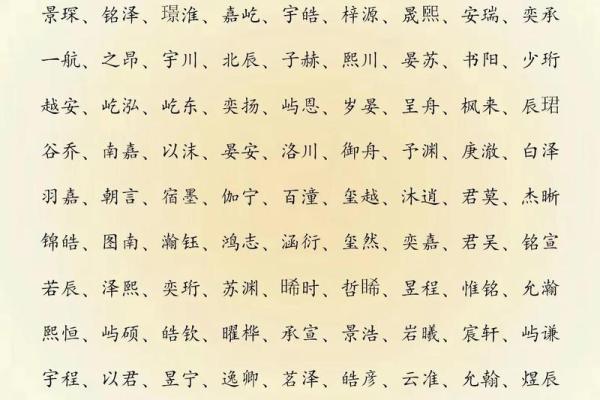 景琛、铭泽、璟淮、嘉屹、宇皓、梓源、晟熙、安瑞、奕承
一航、之昂、宇川、北辰、子赫、熙川、晏苏、书阳、少珩
越安、屹泓、屹东、奕扬、屿恩、岁晏、呈舟、枫来、辰珺
谷乔、南嘉、以沫、晏安、洛川、御舟、予渊、庚澈、白泽
羽嘉、朝言、宿墨、伽宁、百潼、玺越、沐逍、君莫、杰晰
锦皓、图南、瀚钰、鸿志、涵衍、玺然、奕嘉、君吴、铭宣
若辰、泽熙、奕珩、苏渊、晞时、哲晞、昱程、惟铭、允瀚
熙恒、屿硕、皓钦、曜桦、承宣、景浩、岩曦、宸轩、屿谦
宇程、以君、昱宁、逸卿、茗泽、皓彦、云准、允翰、煜辰